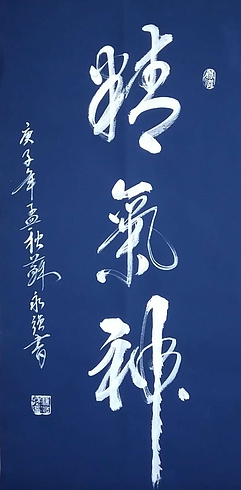 精氣神
庚子年孟秋蘇永強書